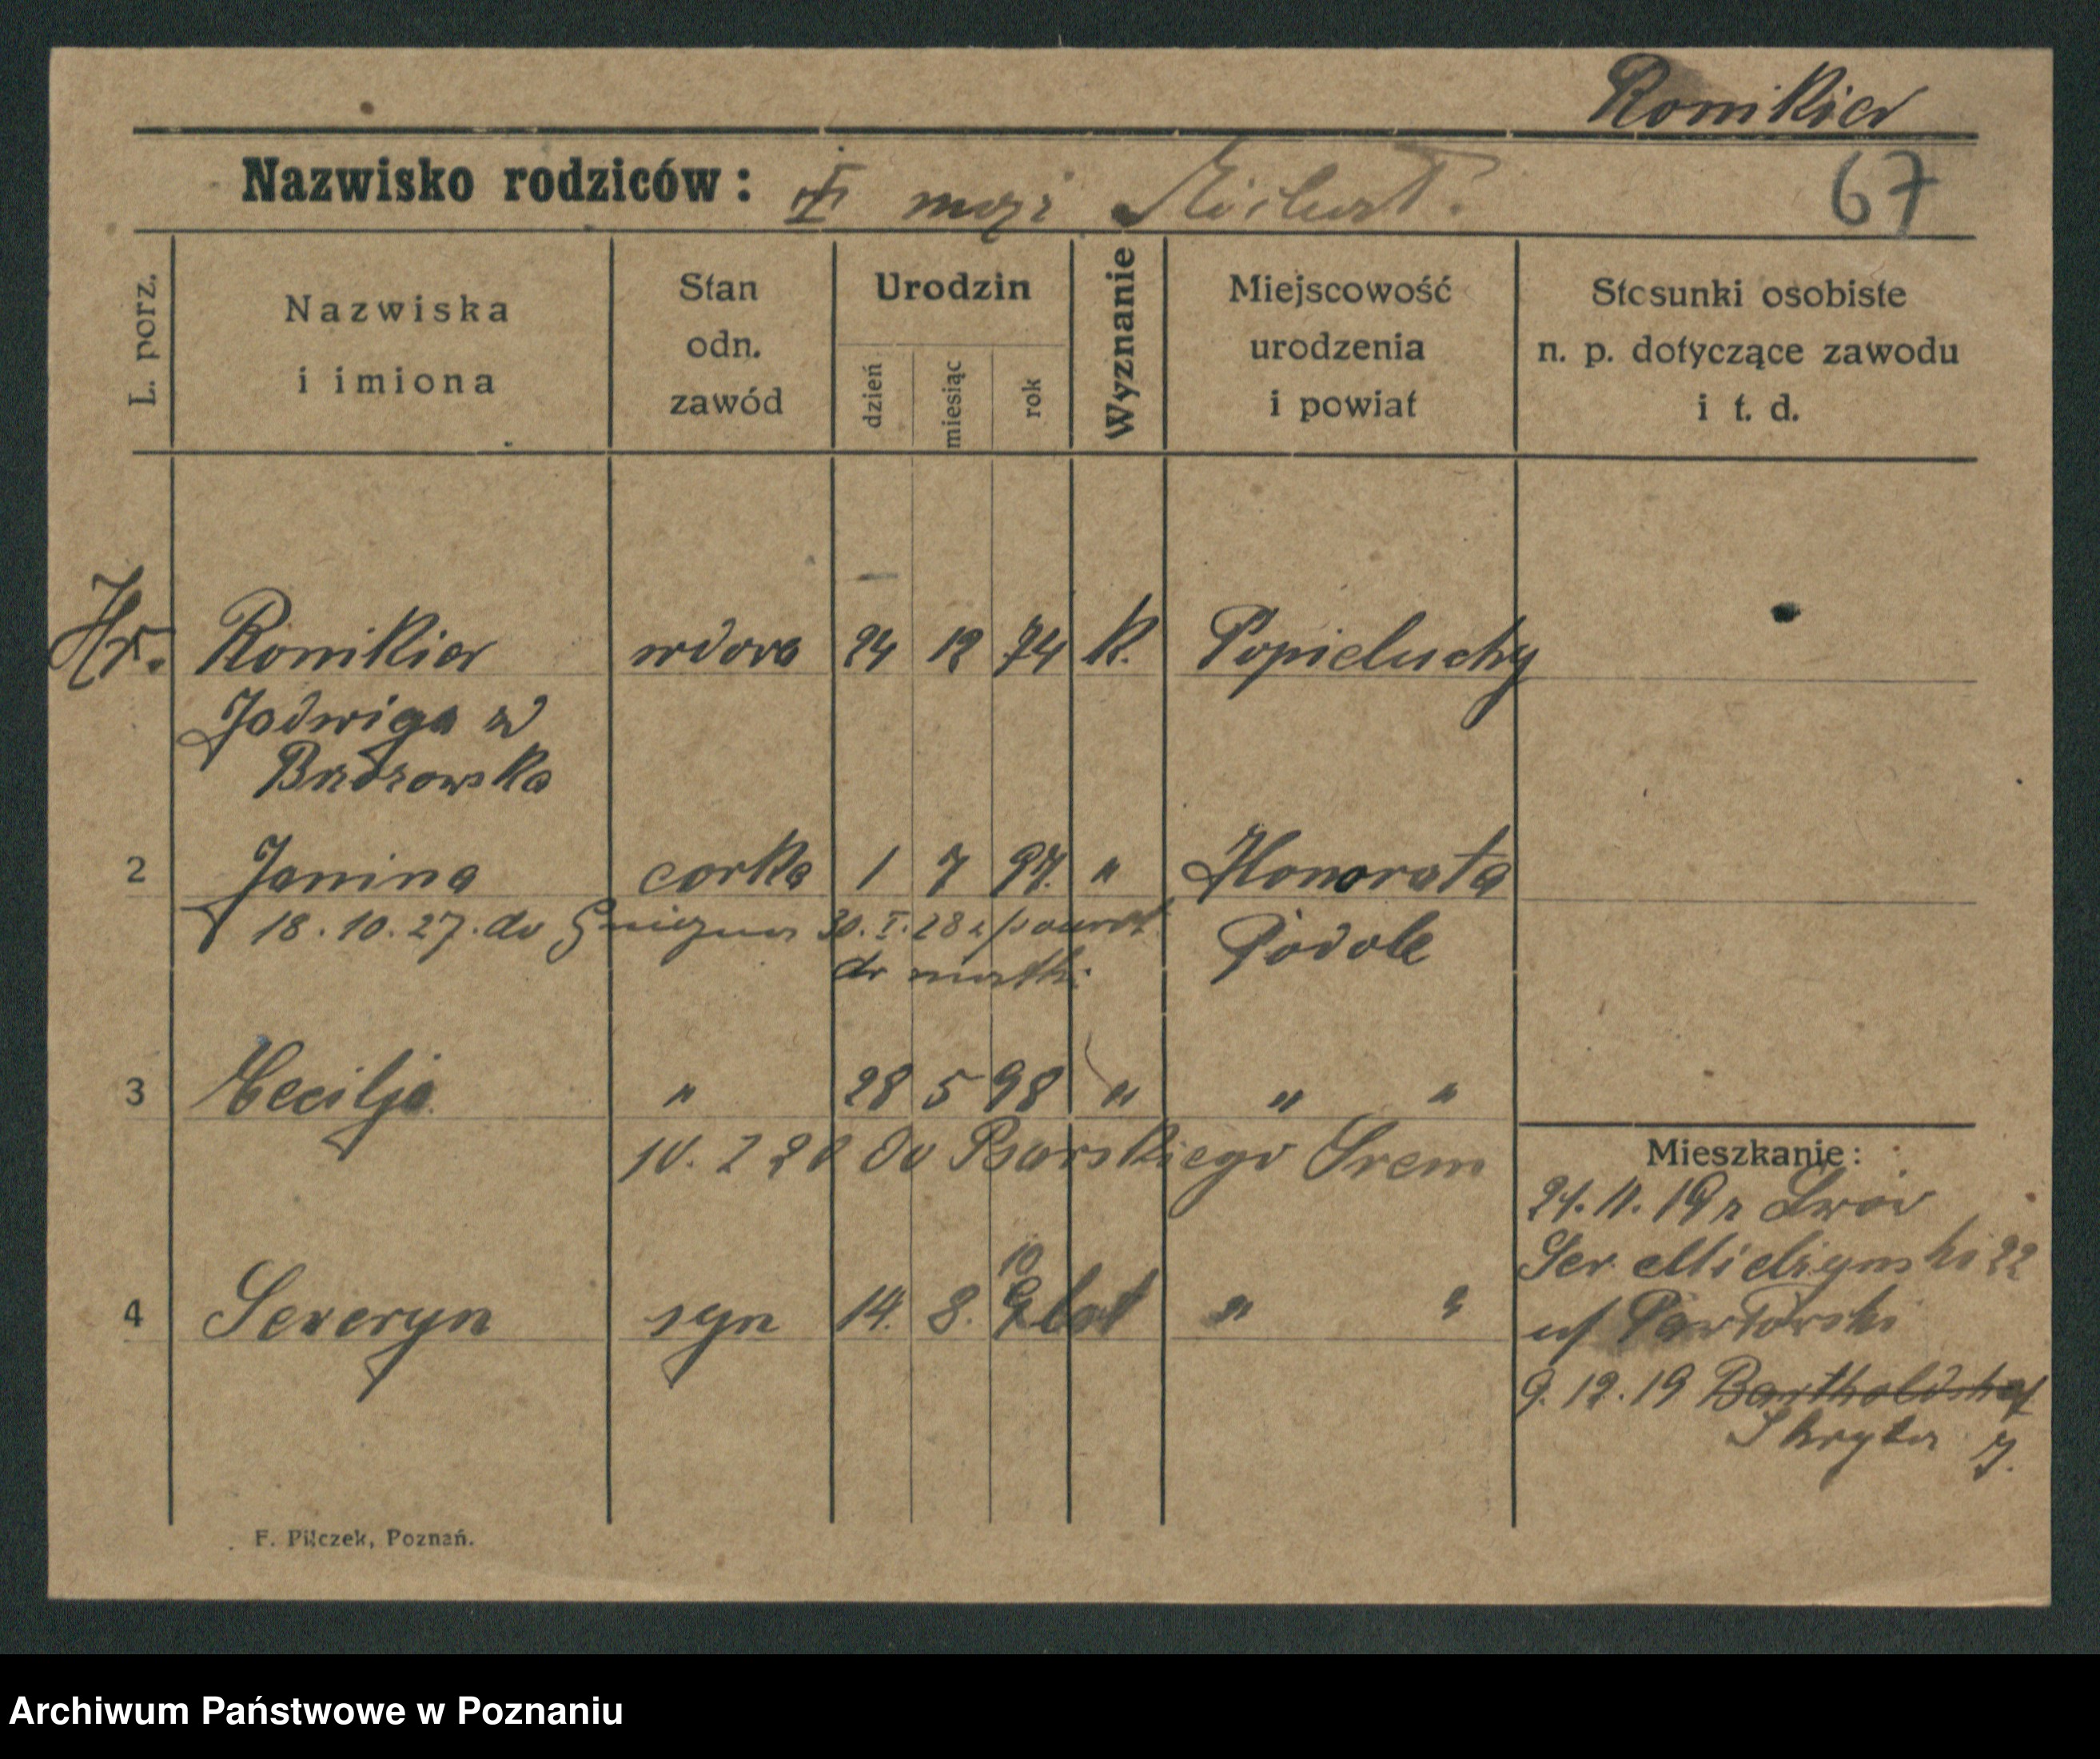 Ronikier
Nazwisko rodziców: I mąż 67
L. porz.
Nazwiska i imiona
Stan odn. zawód
Urodzin
dzień miesiąc rok
Wyznanie
Miejscowość urodzenia i powiat
Stosunki osobiste n. p. dotyczące zawodu i t. d.
Hr. Ronikier wdowa 24 12 74 k. Popieluchy
Jadwiga
Brzozowska
2 Janina corka 1 7 97. " Honorata
18.10.27. do Gniezna 30.I.28 powrót Podole
do matki
3 Cecilja " 28 5 98 " " "
10. 2 20 do Srem
Mieszkanie:
24.11.19 r Lwów
Sew Mielżynski 22
4 Seweryn syn 14. 8. 10 lat " "
9.12.19 Bartholdshof
Skryta 7.
F. Pilczek, Poznań.
Archiwum Państwowe w Poznaniu